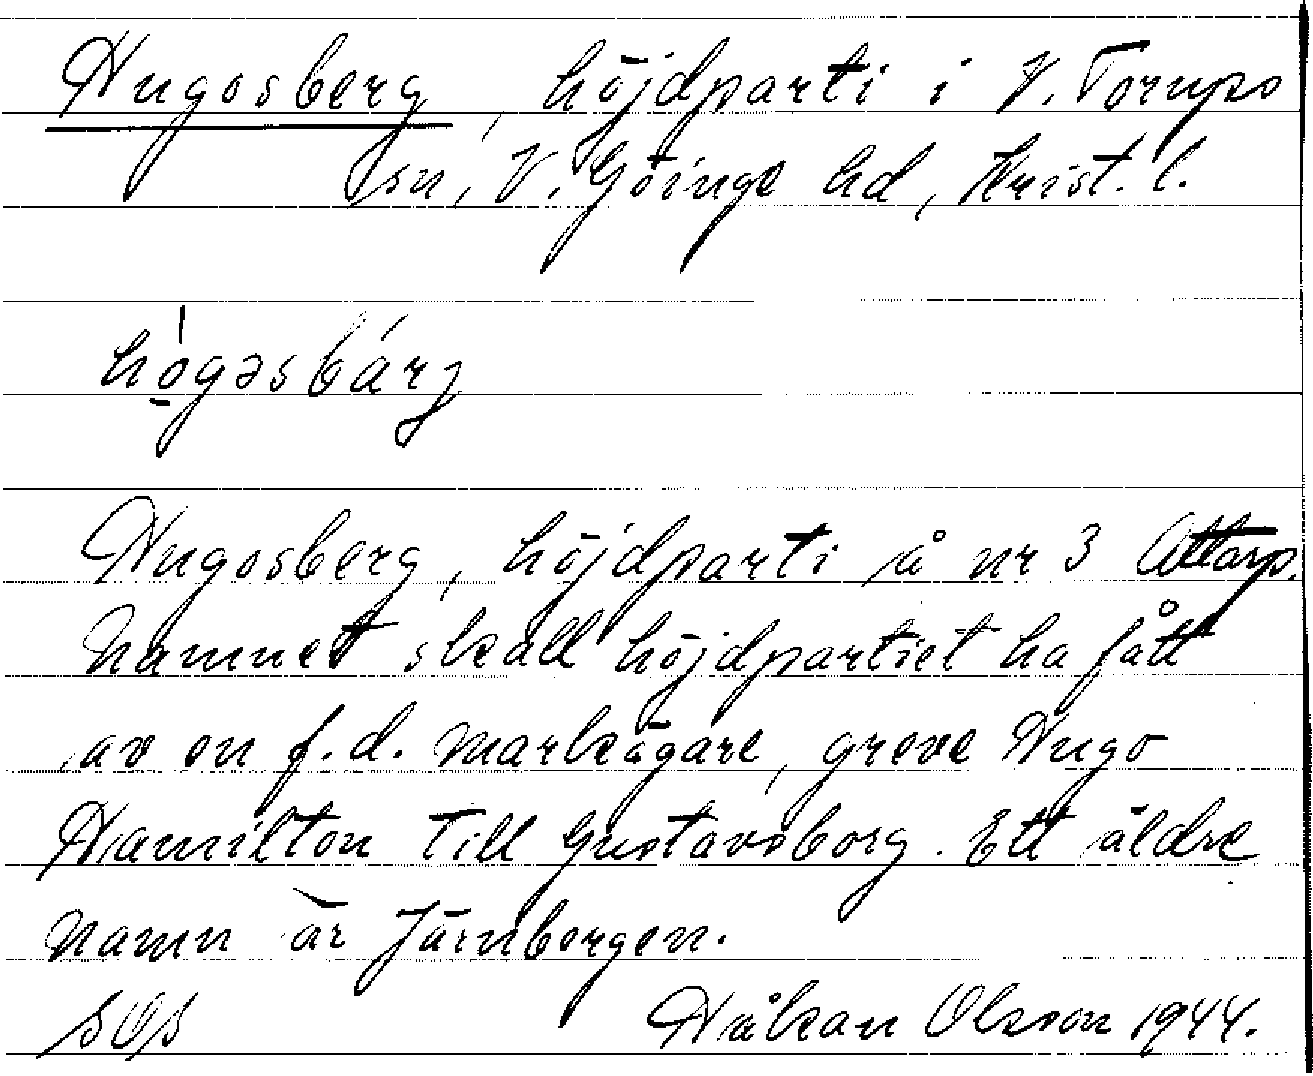 Hugosberg, höjdparti i V. Torups
sn, V. Göinge hd, Krist. l.
hó̱gəsbárj
Hugosberg, höjdparti å nr 3 Attarp.
Namnet skall höjdpartiet ha fått
av en f.d. markägare, greve Hugo
Hamilton till Gustavsborg. Ett äldre
namn är Järnbergen.
SOS Håkan Olsson 1944.